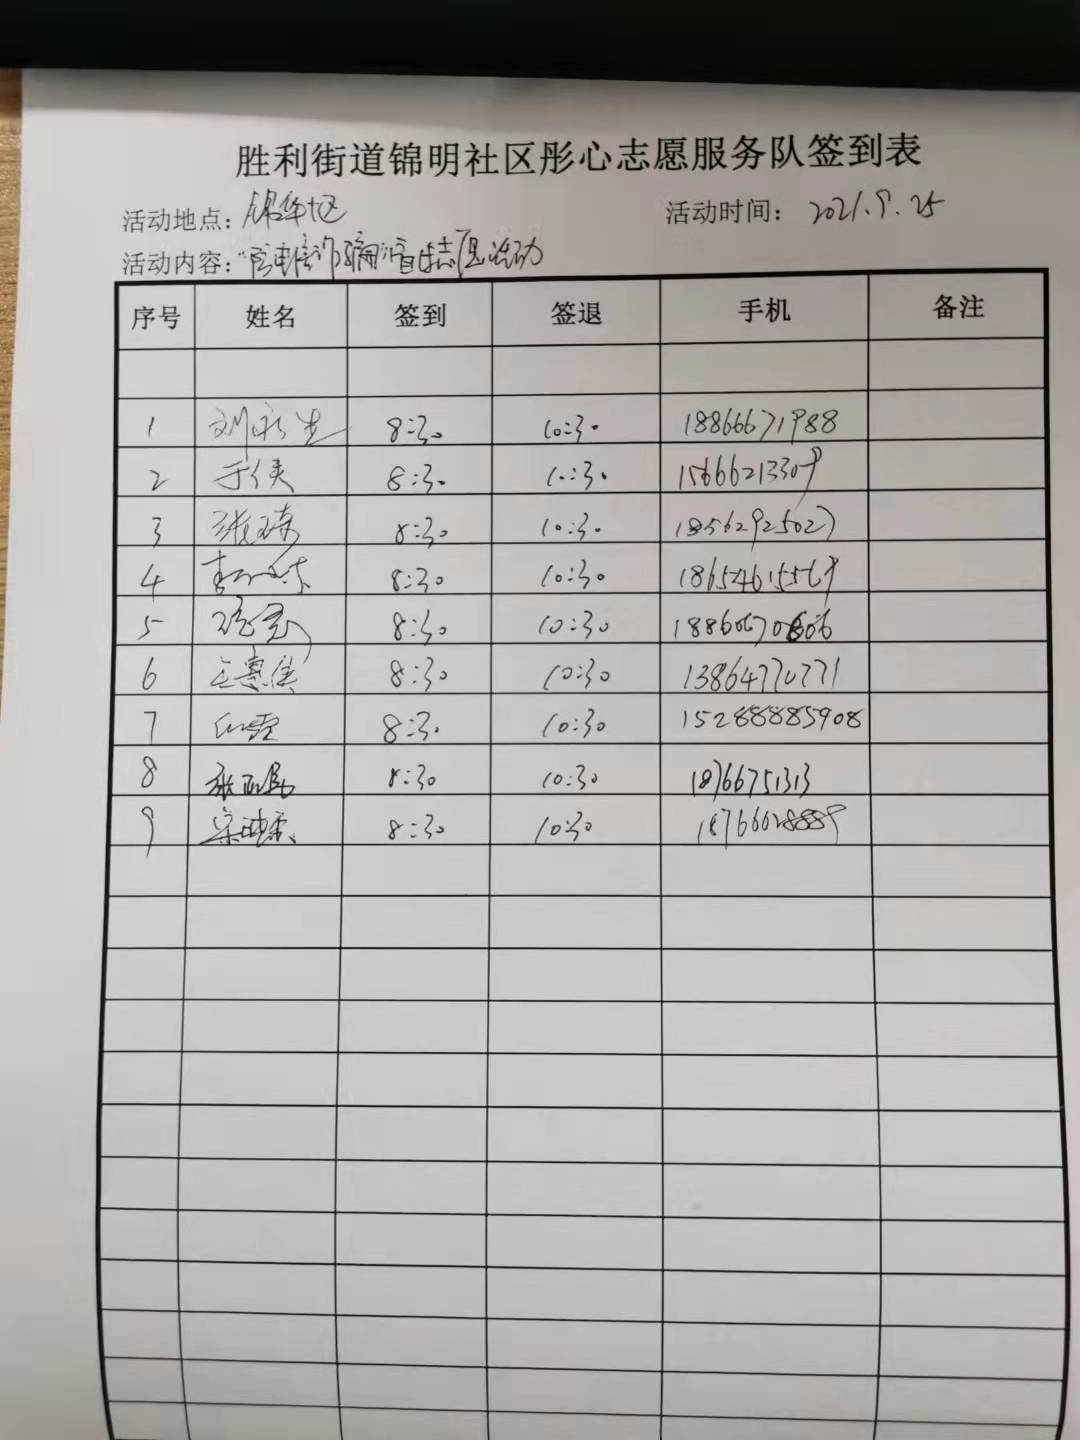 胜利街道锦明社区彤心志愿服务队签到表
活动地点：锦华七区 活动时间：2021.9.25
活动内容："防电信诈骗"宣传志愿活动
序号 姓名 签到 签退 手机 备注
1 刘永生 8:30 10:30 18866671988
2 于侠 8:30 10:30 15666213309
3 8:30 10:30 18562925027
4 8:30 10:30 18654615569
5 8:30 10:30
6 王惠侠 8:30 10:30 13864770771
7 8:30 10:30 15288885908
8 8:30 10:30 18766751313
9 8:30 10:30 18766028889